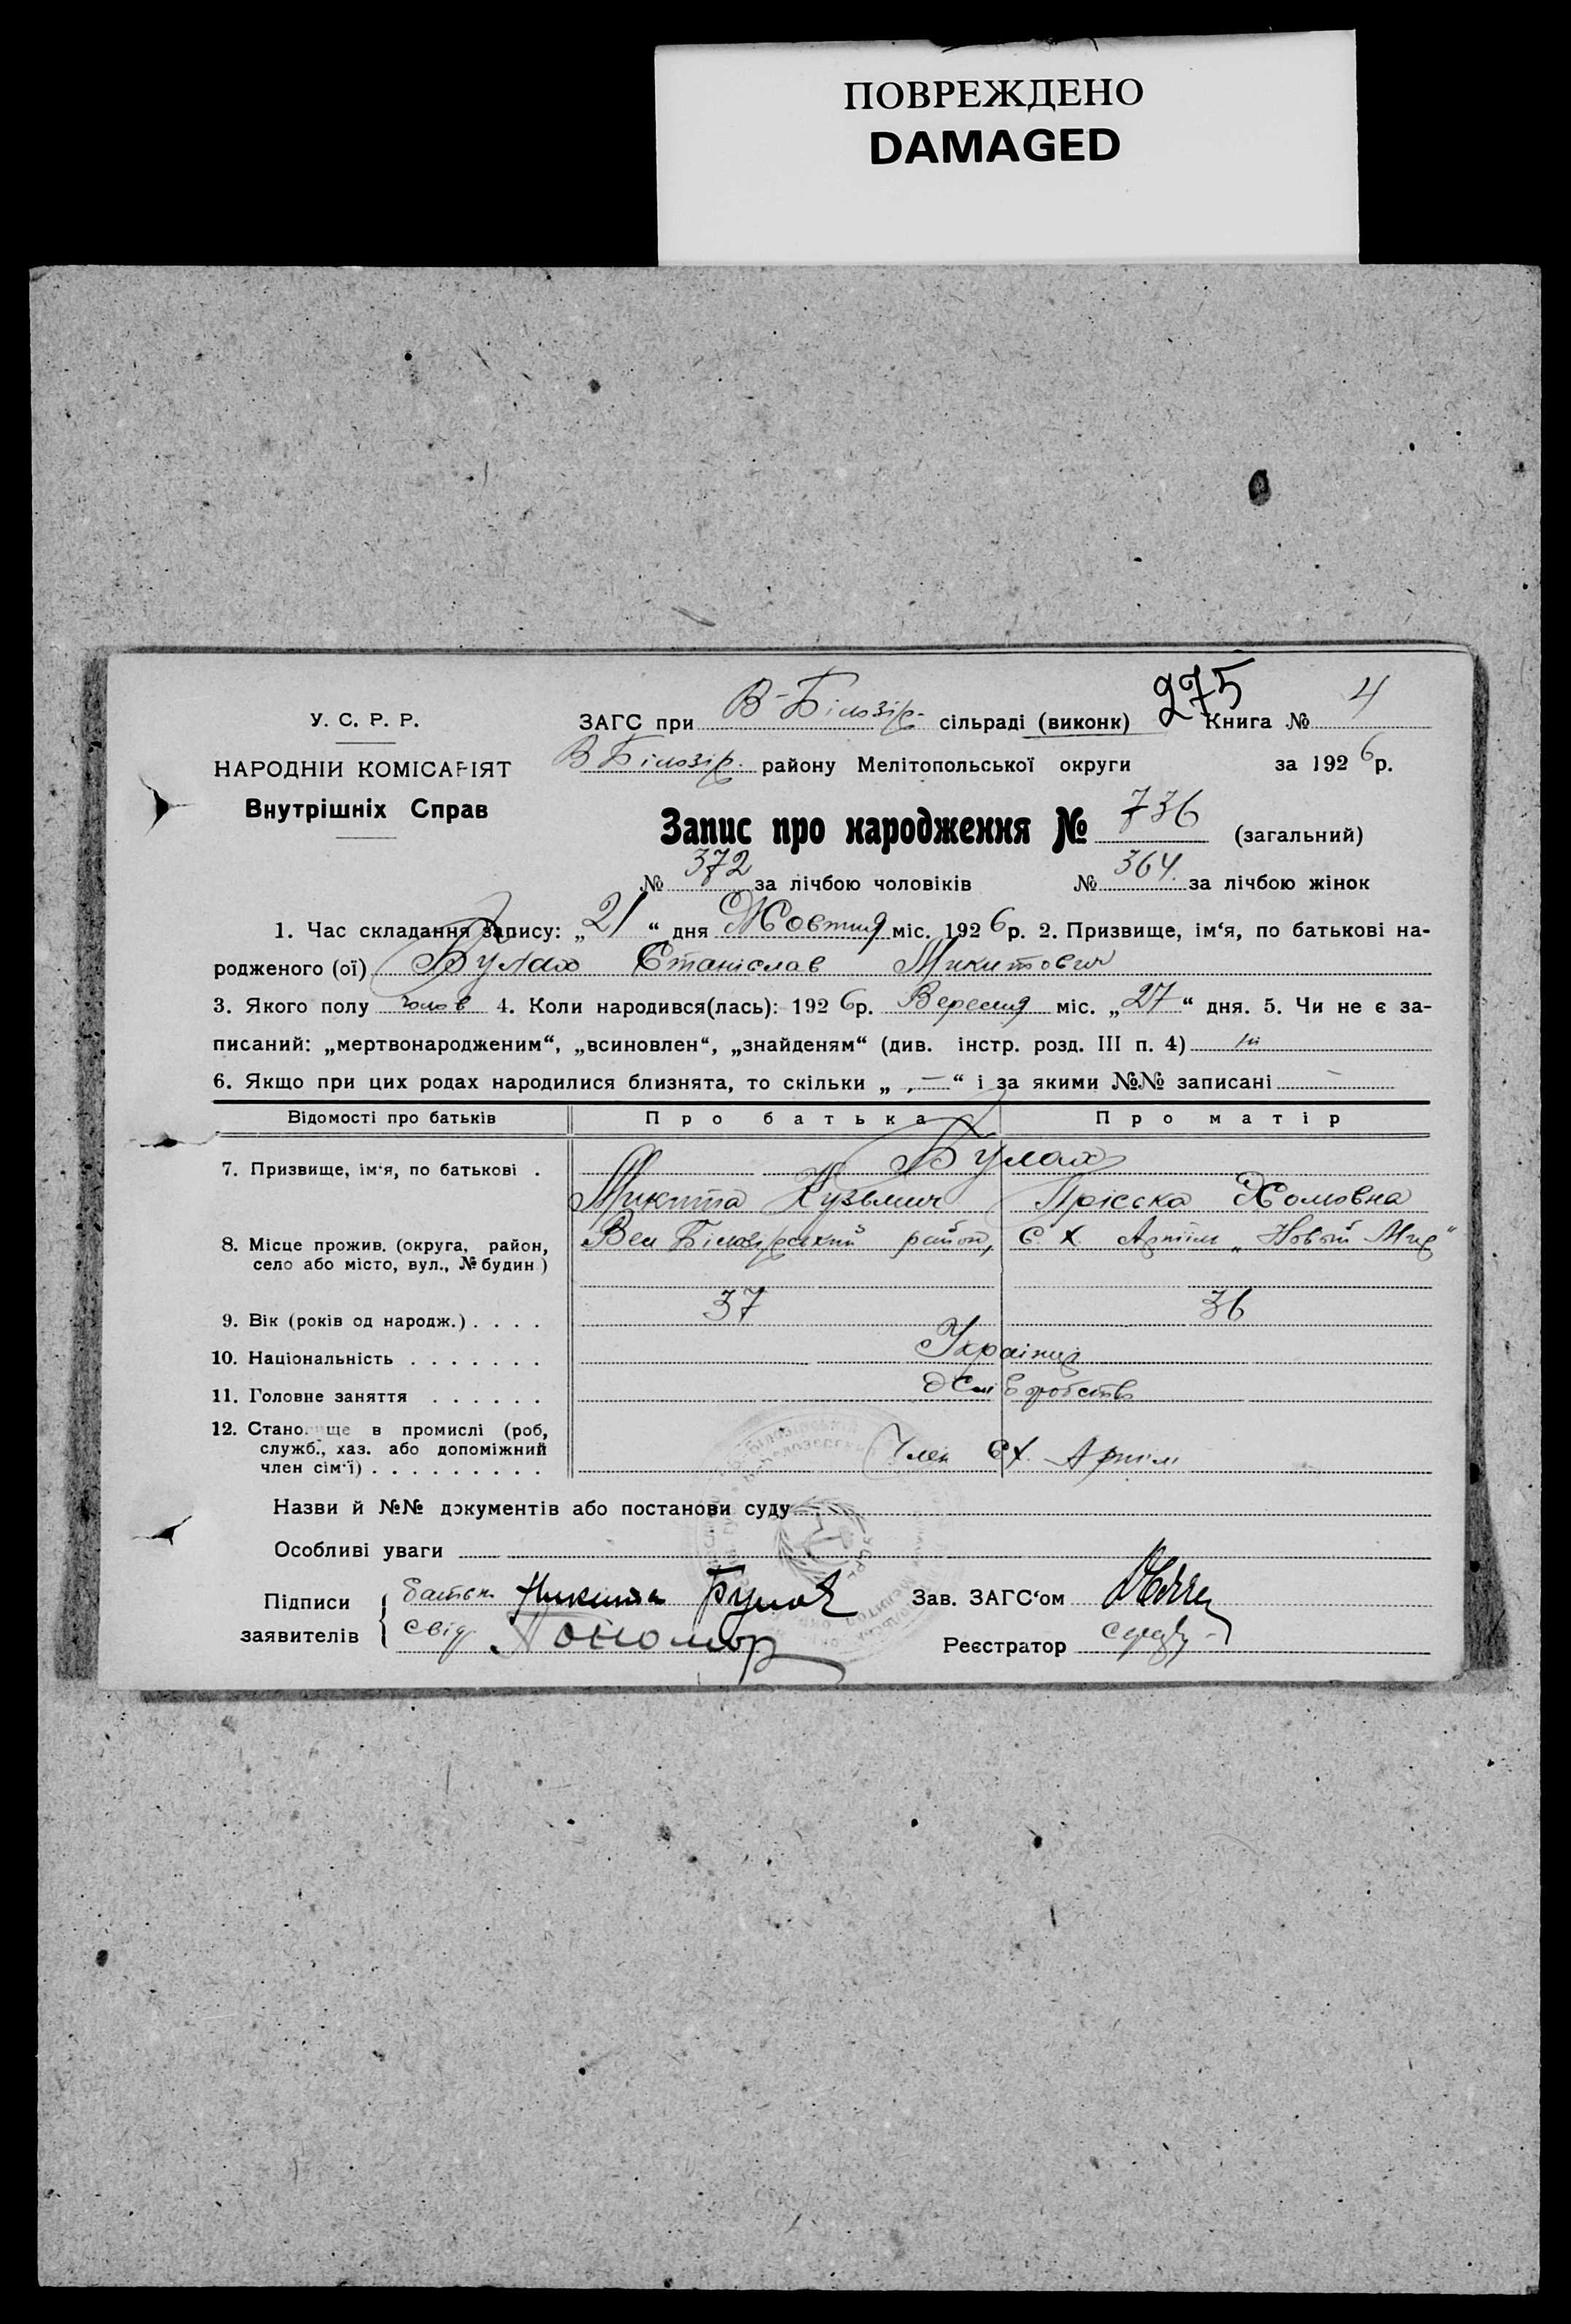 ПОВРЕЖДЕНО
DAMAGED
У. С. Р. Р.
НАРОДНІЙ КОМІСАРІЯТ
Внутрішніх Справ
ЗАГС при В-Білозір. сільраді (виконк) 275 Книга № 4
В Білозір. району Мелітопольської округи за 1926 р.
Запис про народження № 736 (загальний)
№ 372 за лічбою чоловіків № 364. за лічбою жінок
1. Час складання запису: „21“ дня Жовтня міс. 1926 р. 2. Призвище, ім‘я, по батькові на-
родженого (ої) Булах Станіслав Микитович
3. Якого полу чолов 4. Коли народився(лась): 1926 р. Вересня міс. „27“ дня. 5. Чи не є за-
писаний: „мертвонародженим“, „всиновлен“, „знайденям“ (див. інстр. розд. III п. 4) ні
6. Якщо при цих родах народилися близнята, то скільки „ — “ і за якими №№ записані —
Відомості про батьків Про батька Про матір
7. Призвище, ім‘я, по батькові . Булах
Микита Кузьмич Прісска Хомовна
8. Місце прожив. (округа, район, село або місто, вул., № будин.) Вел Білозірський район, С. Х. Артіль „Новый Мир“
9. Вік (років од народж.) . . . . 37 36
10. Національність . . . . . . . Українці
11. Головне заняття . . . . . . Хліборобство
12. Становище в промислі (роб,
служб., хаз. або допоміжний
член сім‘ї) . . . . . . . . . Член СХ. Артілі
Назви й №№ документів або постанови суду
Особливі уваги
Підписи заявителів { батьк Никита Булах Зав. ЗАГС‘ом
свід Пономар Реєстратор